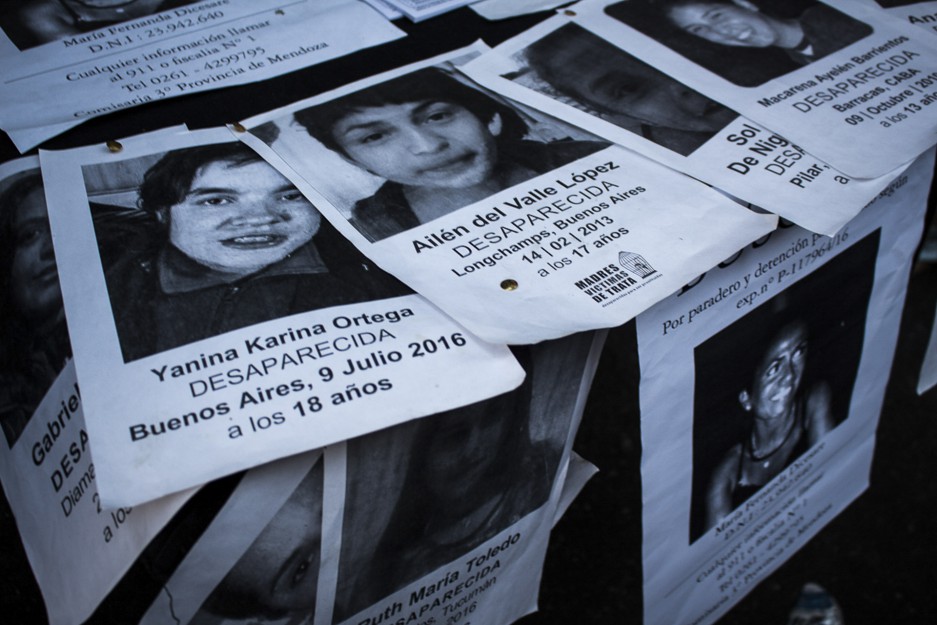 María Fernanda Dicesare
D.N.I : 23.942.640
Cualquier información llamar
al 911 o fiscalía N° 1
Tel 0261 - 4299795
Comisaria 3° Provincia de Mendoza
Macarena Ayelén Barrientos
DESAPARECIDA
Barracas, CABA
09 | Octubre |
a los 13 años
De Nig
Pilar
a
Ailén del Valle López
DESAPARECIDA
Longchamps, Buenos Aires
14 | 02 | 2013
a los 17 años
MADRES
VÍCTIMAS
DE TRATA
Yanina Karina Ortega
DESAPARECIDA
Buenos Aires, 9 Julio 2016
a los 18 años
Gabriel
DESA
Diama
2
a los
Ruth María Toledo
DESAPARECIDA
es, Tucumán
2016
Por paradero y detención
exp.n° P-117964/16
María Fernanda Dicesare
D.N.I : 23.942.640
Cualquier información llamar
al 911 o fiscalía N° 1
Tel 0261 - 4299795
Comisaria 3° Provincia de Mendoza